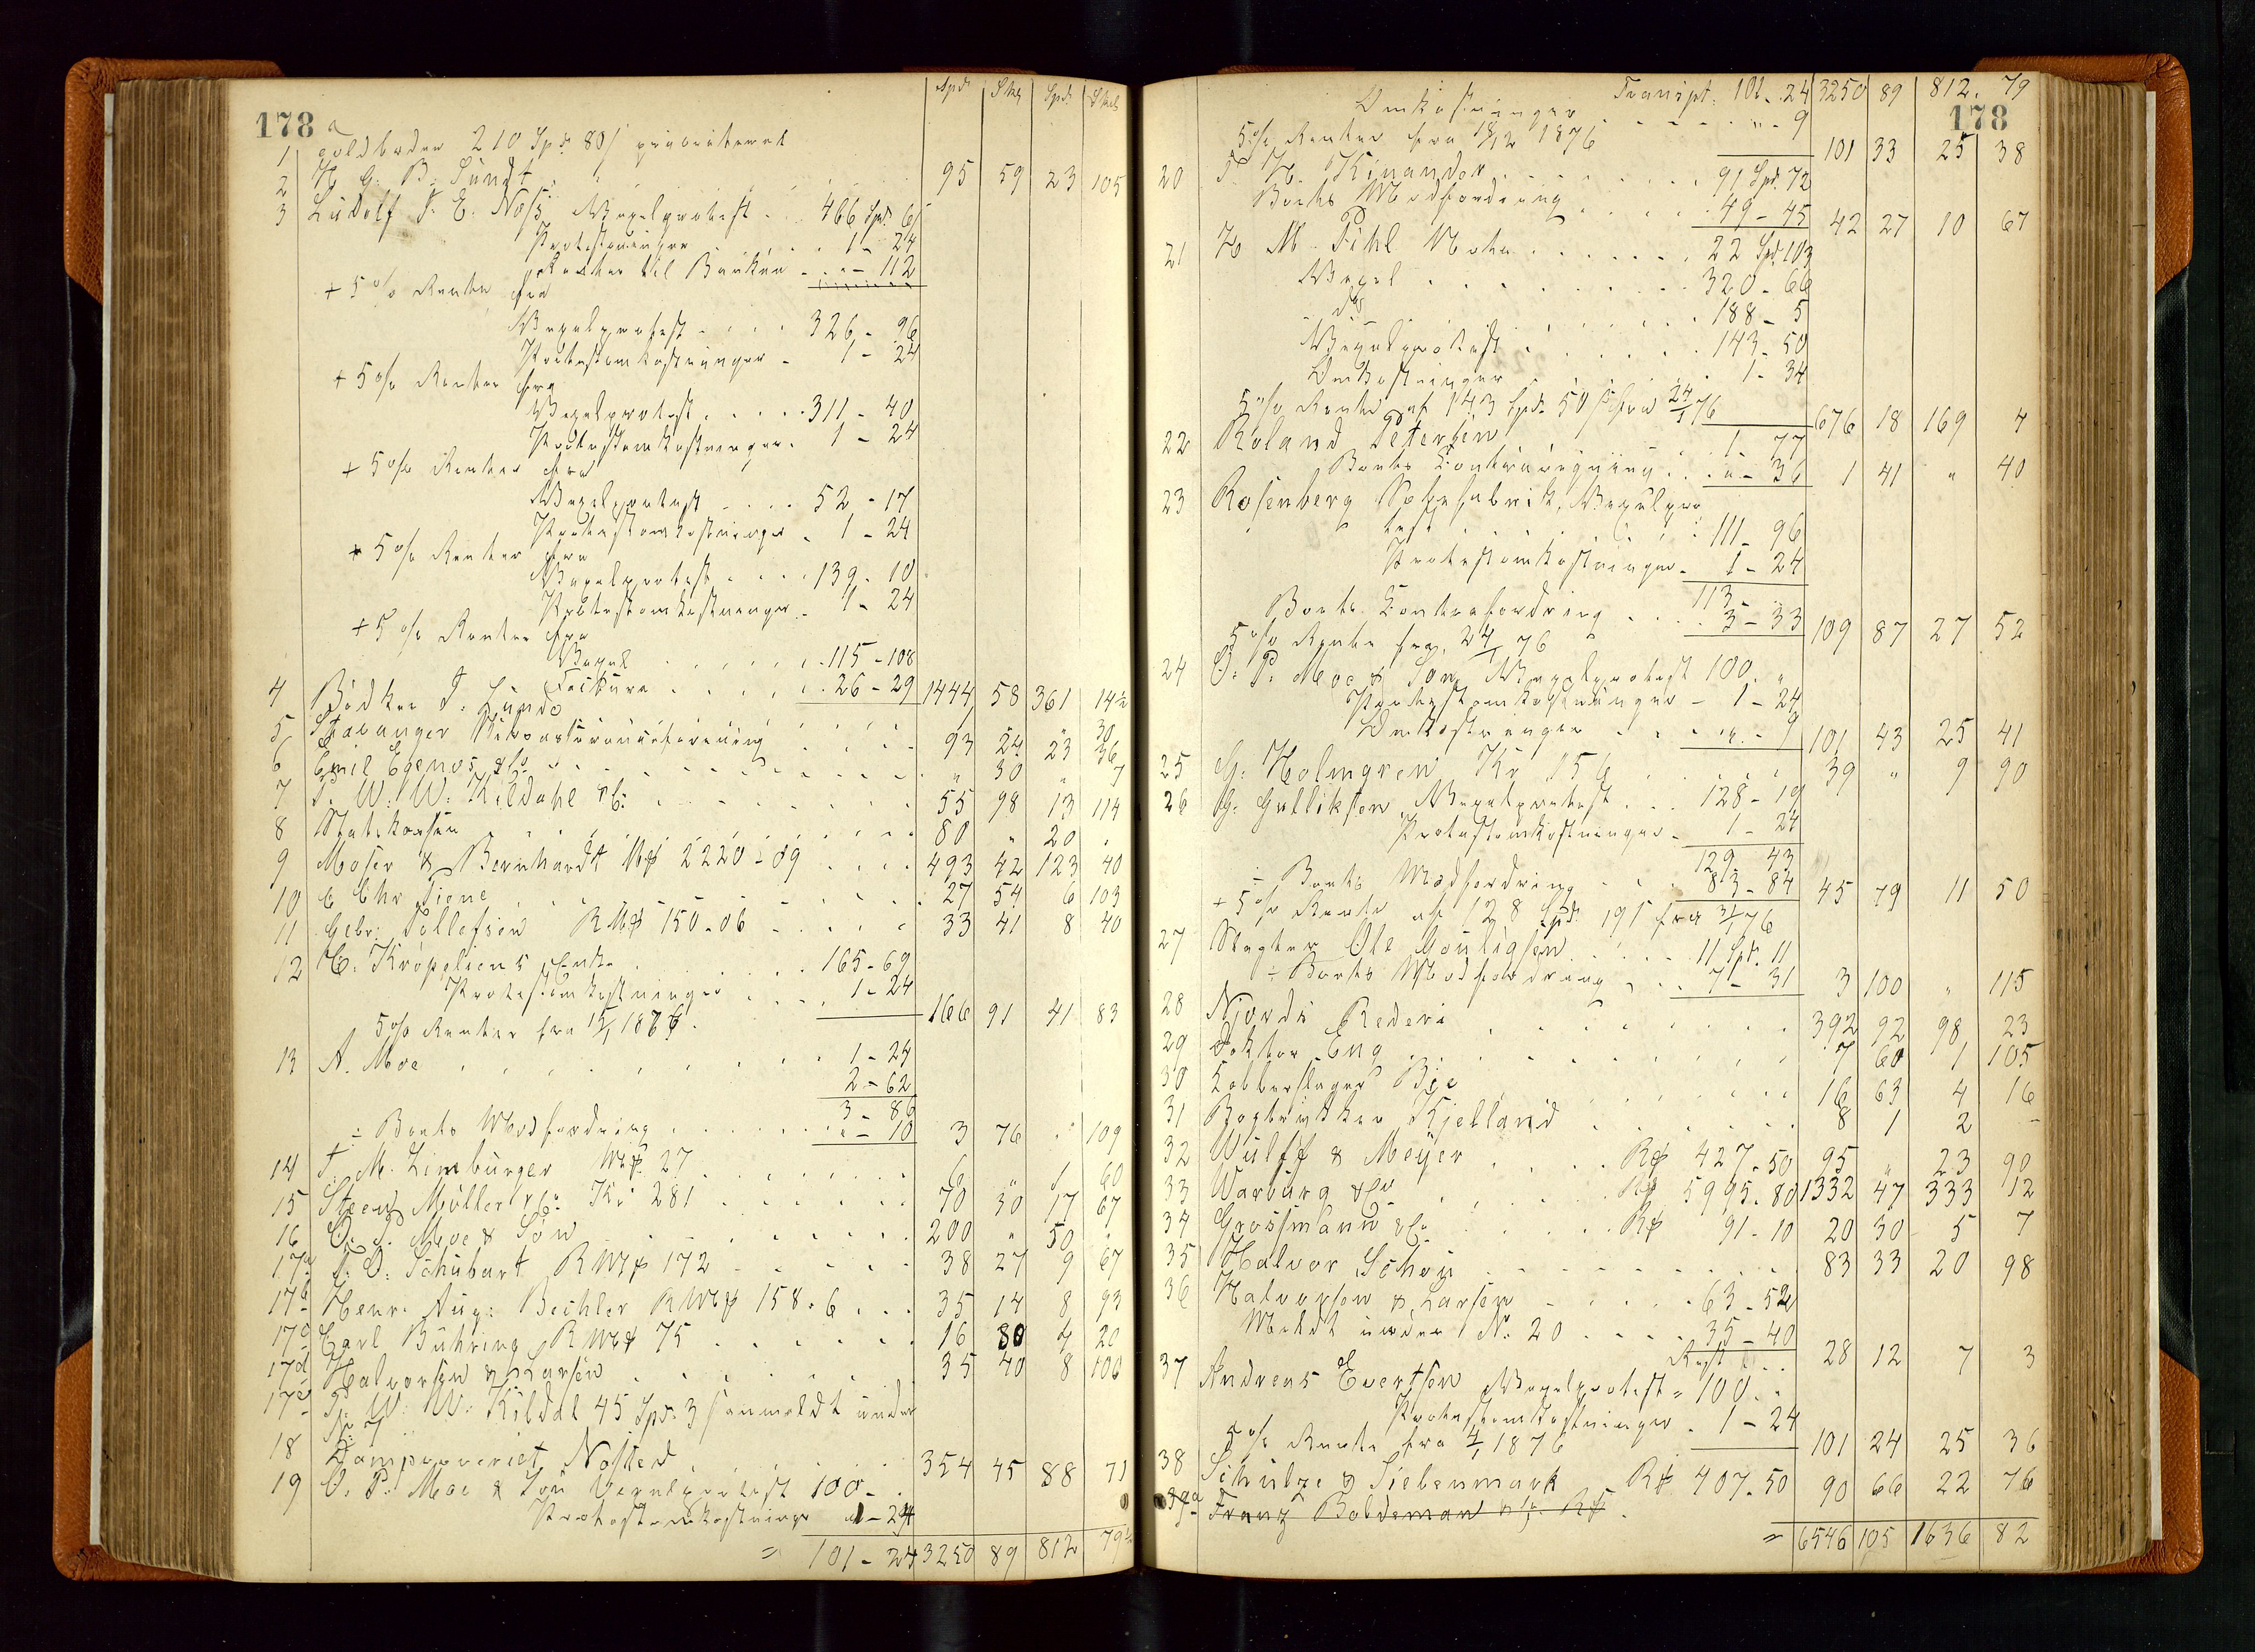 Spd. Skl Spd. Skl
178 a
1 Goldboden 210 Spd. 80 ſ prioriteret
2 H. G. B. Sundt . . . 95 59 23 105
3 Ludolf T. E. Næss Vexelprotest . . 466 Spd. 6
Protestomkostninger . . . 1 - 24
Renter til Banken - " - 112
+ 5 % Rente fra
Vexelprotest . . . 326 - 96
Protestomkostninger - 1 - 24
+ 5 % Renter fra
Vexelprotest . . . . 311 - 40
Protestomkostninger . 1 - 24
+ 5 % Renter fra
Vexelprotest . . . . 52 - 17
Protestomkostninger . 1 - 24
+ 5 % Renter fra
Vexelprotest . . . 139 - 10
Protestomkostninger . 1 - 24
+ 5 % Renter fra
Vexel . . . . . . 115 - 108
Factura . . . . . 26 - 29 1444 58 361 14½
4 Bødker T. Lunde " 30
5 Stavanger . . . . 93 24 23 36
6 Emil Egenæs & Co . . . " 30 " 7
7 T. W. W. Kildahl & C. . . . . 55 98 13 114
8 Statskassen . . . . 80 " 20 "
9 Moser & Bernhardt Mk 2220 - 09 . . . . 493 42 123 40
10 C Chr Tiene . . . . 27 54 6 103
11 Gebr: Tollefsen RMk 150 - 06 . . . 33 41 8 40
12 C. Kröpeliens Enke . . . . 165 - 69
Protestomkostninger . . . . 1 - 24 166 91 41 83
5 % Renter fra 15/1 1876.
13 A. Moe . . . . . 1 - 24
2 - 62
3 - 86
÷ Boets Modfordring . . . . " - 10 3 76 " 109
14 T. M. Limburger Mk. 27 . . . . 6 " 1 60
15 Steen Müller & C: Kr 281 . . . . 70 30 17 67
16 O. P. Moe & Søn . . . . 200 " 50 "
17a T. O. Schubart RMk 172 . . . . 38 27 9 67
17b Henr. Aug: Bechler RMk 158 - 6 . . . 35 14 8 93
17c Carl Bühring RMk 75 . . . . 16 80 4 20
17d Halvorsen & Larsen . . . . 35 40 8 100
17e T. W. W. Kildal 45 Spd. 3 ſ anmeldt under
Nº 7
18 Dampveveriet Nøsted . . . . 354 45 88 71
19 O. P. Moe & Søn Vexelprotest 100 - "
Protestomkostninger 1 - 24
= 101 - 24 3250 89 812 79½
Transpt. 101 - 24 3250 89 812. 79
178
Omkostninger . . . . " - 9
5 % Renter fra 18/12 1876 101 33 25 38
20 T. H. Kinander . . . . 91 Spd. 72
Boets Modfordring . . . . 49 - 45 42 27 10 67
21 H. M. Pihl Nota . . . . 22 Spd. 103
Vexel . . . . 320 - 66
do . . . . 188 - 5
Vexelprotest . . . . 143 - 50
Omkostninger . . . 1 - 34
5 % Rente af 143 Spd. 50 ſ fra 24/1 76 676 18 169 4
22 Roland Petersen . . . 1 - 77
Boets Contraregning . . . " - 36 1 41 " 40
23 Rosenberg Sæbefabrik, Vexelpro
test . . . . 111 - 96
Protestomkostninger - 1 - 24
113 "
Boets Contrafordring . . . . 3 - 33 109 87 27 52
5 % Rente fra 24/1 76
24 O. P. Moe & Søn Vexelprotest 100. "
Protestomkostninger - 1 - 24
Omkostninger . . . " - 9 101 43 25 41
25 G. Holmgren Kr 156 . . . . 39 " 9 90
26 G. Gulliksen Vexelprotest . . . 128 - 19
Protestomkostninger - 1 - 24
129 - 43
÷ Boets Modfordring . . . 83 - 84 45 79 11 50
+ 5 % Rente af 128 Spd. 19 ſ fra 3/1 76
27 Slagter Ole Gauligsen . . . . 11 Spd. 11
÷ Boets Modfordring . . . 7 - 31 3 100 " 115
28 Njords Rederi . . . . 392 92 98 23
29 Doktor Eng . . . . 7 60 1 105
30 Kobberslager Bie . . . . 16 63 4 16
31 Bogtrykker Kielland . . . . 8 1 2 -
32 Wulff & Meyer . . . . Rk 427 - 50 95 " 23 90
33 Warburg & Co . . . . Rk 5995 - 80 1332 47 333 12
34 Grossmann & Co . . . . Rk 91 - 10 20 30 5 7
35 Halvor Schou . . . . 83 33 20 98
36 Halvorsen & Larsen - . . . . 63 - 52
Meldt under Nº 20 . . . . 35 - 40
Rest . . . 28 12 7 3
37 Andreas Evertsen Vexelprotest = 100 . "
Protestomkostninger . 1 - 24
5 % Rente fra 4/1 1876 101 24 25 36
38 Schulze & Siebenmark Rk 407 - 50 90 66 22 76
39a Franz Boldeman & Co. Rk .
= 6546 105 1636 82